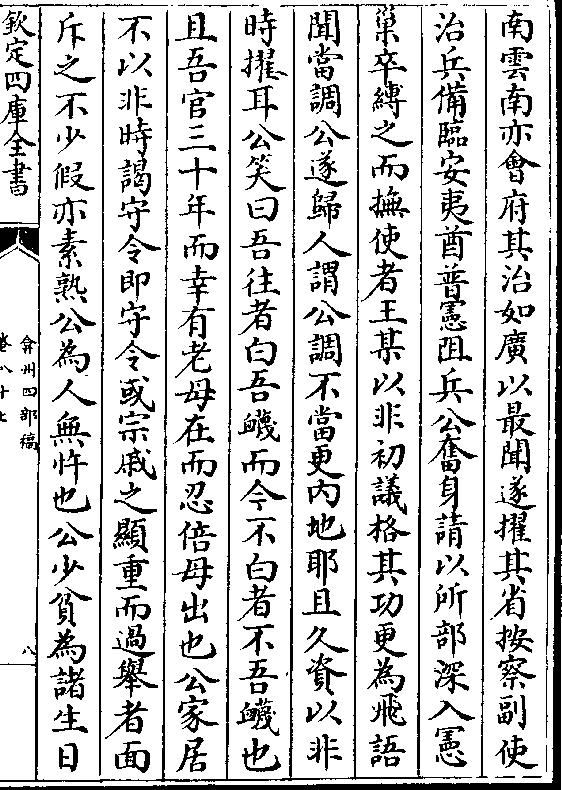 南雲南亦會府其治如廣以最聞遂擢其省按察副使
治兵備臨安夷酋普憲阻兵公奮身請以所部深入憲
巢卒縛之而撫使者王某以非初議格其功更為飛語
聞當調公遂歸人謂公調不當更内地耶且久資以非
時擢耳公笑曰吾往者白吾衊而今不白者不吾衊也
且吾官三十年而幸有老母在而忍倍母出也公家居
不以非時謁守令即守令或宗戚之顯重而過舉者面
斥之不少假亦素熟公為人無忤也公少貧為諸生日
欽定四庫全書
弇州四部稿
卷八十七
八